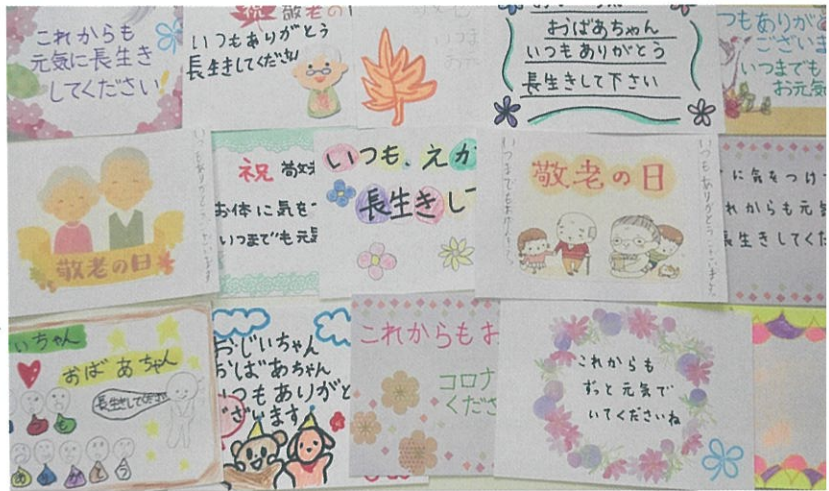 これからも
元気に長生き
してください!
祝 敬老の
いつもありがとう
長生きしてください
おばあちゃん
いつもありがとう
長生きして下さい
つもありがと
ございま
いつまでも
お元気
敬老の日
祝 敬老
お体に気を
いつまでも元気
いつも、えが
長生きして
いつまでもお元気で
敬老の日
いつもありがとうございます
に気をつけ
れからも元気
長生きしてくだ
いちゃん
おばあちゃん
長生きしてくださ
おじいちゃん
おばあちゃん
いつもありがと
ございます
これからもお
コロナ
くださ
これからも
ずっと元気で
いてくださいね